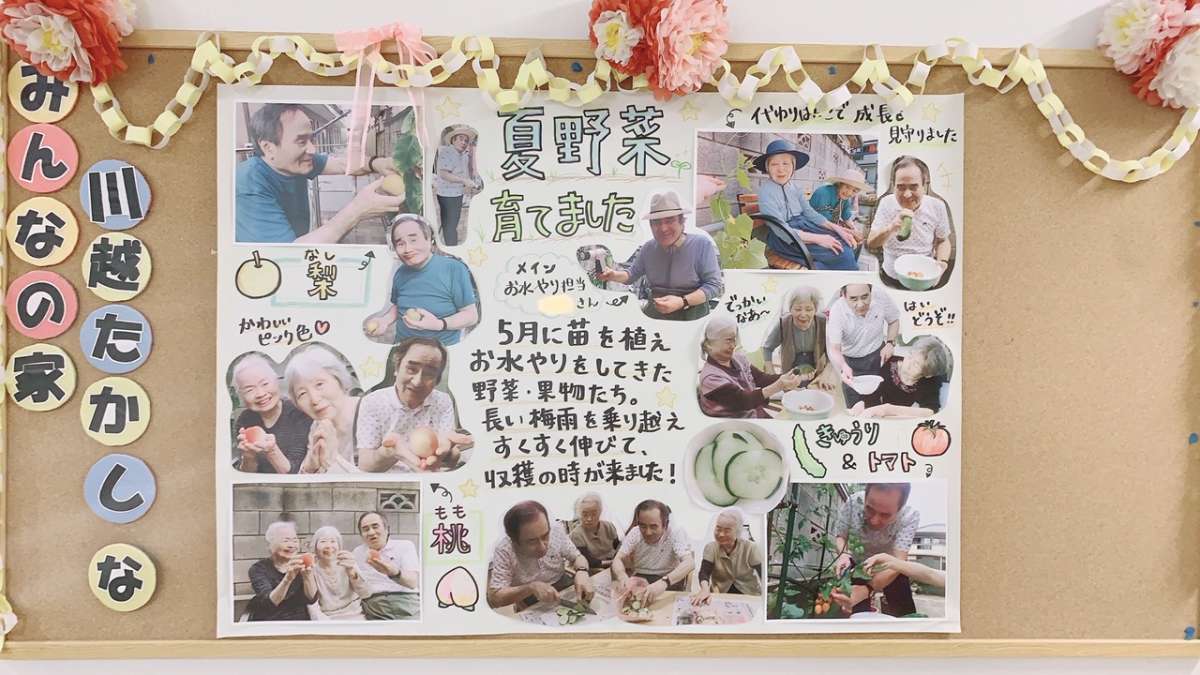 みんなの家
川越たかしな
夏野菜
育てました
代わりばんこで成長を
見守りました
なし
梨
メイン
お水やり担当
さん
かわいい
ピンク色
5月に苗を植え
お水やりをしてきた
野菜・果物たち。
長い梅雨を乗り越え
すくすく伸びて、
収穫の時が来ました!
でっかい
なあ〜
はい
どうぞ!!
きゅうり
& トマト
もも
桃